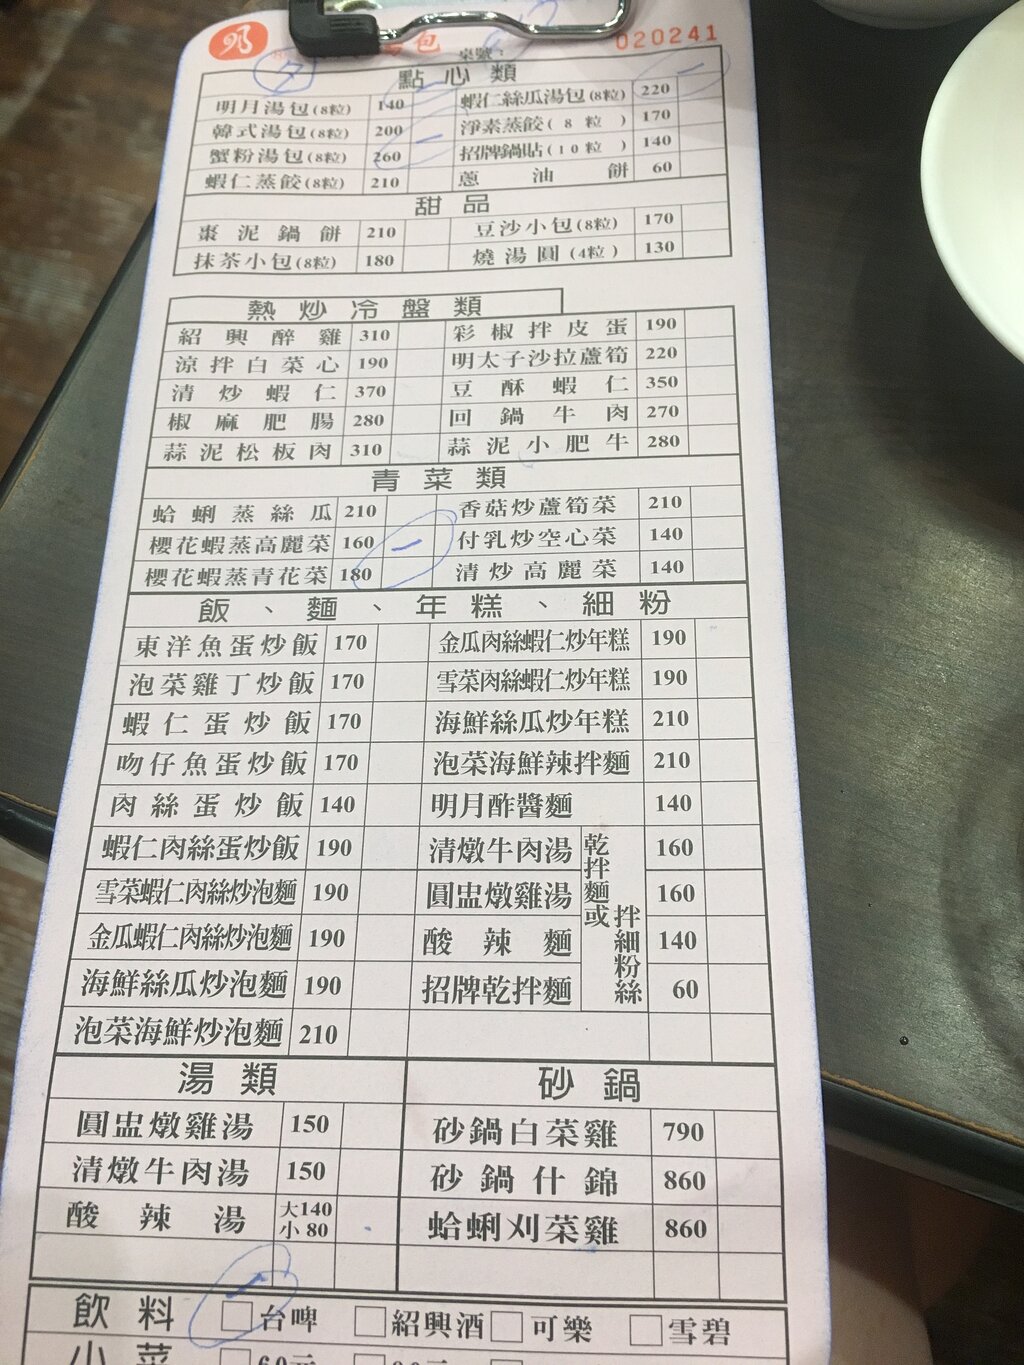 包
桌號：
020241
點心類
明月湯包(8粒) 140 蝦仁絲瓜湯包(8粒) 220 一
韓式湯包(8粒) 200 淨素蒸餃(8粒) 170
蟹粉湯包(8粒) 260 一 招牌鍋貼(10粒) 140
蝦仁蒸餃(8粒) 210 蔥油餅 60
甜品
棗泥鍋餅 210 豆沙小包(8粒) 170
抹茶小包(8粒) 180 燒湯圓(4粒) 130
熱炒冷盤類
紹興醉雞 310 彩椒拌皮蛋 190
涼拌白菜心 190 明太子沙拉蘆筍 220
清炒蝦仁 370 豆酥蝦仁 350
椒麻肥腸 280 回鍋牛肉 270
蒜泥松板肉 310 蒜泥小肥牛 280
青菜類
蛤蜊蒸絲瓜 210 香菇炒蘆筍菜 210
櫻花蝦蒸高麗菜 160 一 付乳炒空心菜 140
櫻花蝦蒸青花菜 180 清炒高麗菜 140
飯、麵、年糕、細粉
東洋魚蛋炒飯 170 金瓜肉絲蝦仁炒年糕 190
泡菜雞丁炒飯 170 雪菜肉絲蝦仁炒年糕 190
蝦仁蛋炒飯 170 海鮮絲瓜炒年糕 210
吻仔魚蛋炒飯 170 泡菜海鮮辣拌麵 210
肉絲蛋炒飯 140 明月酢醬麵 140
蝦仁肉絲蛋炒飯 190 清燉牛肉湯 160
雪菜蝦仁肉絲炒泡麵 190 圓盅燉雞湯 160
金瓜蝦仁肉絲炒泡麵 190 酸辣麵 140
海鮮絲瓜炒泡麵 190 招牌乾拌麵 60
乾拌麵或
拌細粉絲
泡菜海鮮炒泡麵 210
湯類 砂鍋
圓盅燉雞湯 150 砂鍋白菜雞 790
清燉牛肉湯 150 砂鍋什錦 860
酸辣湯 大140 小80 蛤蜊刈菜雞 860
飲料 □台啤 □紹興酒 □可樂 □雪碧
小菜 □60元